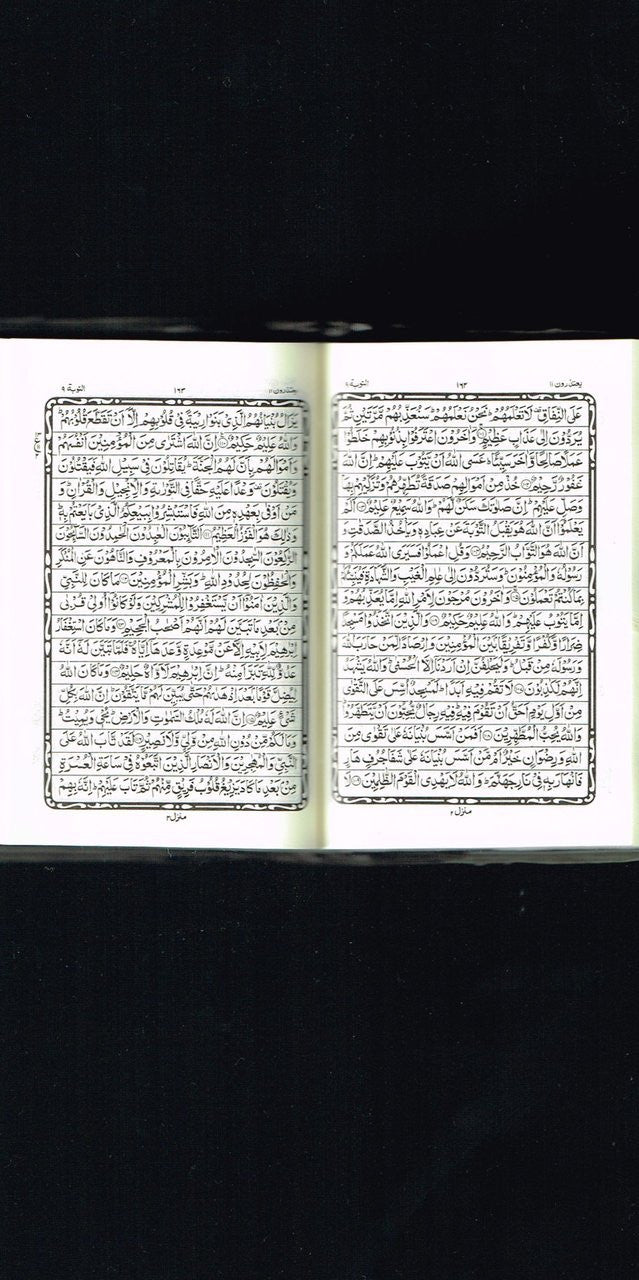 يعتذرون ١١ ١٦٢ التوبة ٩
عَلَى النِّفَاقِ لَا تَعْلَمُهُمْ نَحْنُ نَعْلَمُهُمْ سَنُعَذِّبُهُمْ مَّرَّتَيْنِ ثُمَّ
يُرَدُّوْنَ اِلٰى عَذَابٍ عَظِيْمٍ وَاٰخَرُوْنَ اعْتَرَفُوْا بِذُنُوْبِهِمْ خَلَطُوْا
عَمَلًا صَالِحًا وَّاٰخَرَ سَيِّئًا عَسَى اللّٰهُ اَنْ يَّتُوْبَ عَلَيْهِمْ اِنَّ اللّٰهَ
غَفُوْرٌ رَّحِيْمٌ خُذْ مِنْ اَمْوَالِهِمْ صَدَقَةً تُطَهِّرُهُمْ وَتُزَكِّيْهِمْ بِهَا
وَصَلِّ عَلَيْهِمْ اِنَّ صَلٰوتَكَ سَكَنٌ لَّهُمْ وَاللّٰهُ سَمِيْعٌ عَلِيْمٌ اَلَمْ
يَعْلَمُوْا اَنَّ اللّٰهَ هُوَ يَقْبَلُ التَّوْبَةَ عَنْ عِبَادِهٖ وَيَاْخُذُ الصَّدَقٰتِ وَ
اَنَّ اللّٰهَ هُوَ التَّوَّابُ الرَّحِيْمُ وَقُلِ اعْمَلُوْا فَسَيَرَى اللّٰهُ عَمَلَكُمْ وَ
رَسُوْلُهٗ وَالْمُؤْمِنُوْنَ وَسَتُرَدُّوْنَ اِلٰى عٰلِمِ الْغَيْبِ وَالشَّهَادَةِ فَيُنَبِّئُكُمْ
بِمَا كُنْتُمْ تَعْمَلُوْنَ وَاٰخَرُوْنَ مُرْجَوْنَ لِاَمْرِ اللّٰهِ اِمَّا يُعَذِّبُهُمْ وَ
اِمَّا يَتُوْبُ عَلَيْهِمْ وَاللّٰهُ عَلِيْمٌ حَكِيْمٌ وَالَّذِيْنَ اتَّخَذُوْا مَسْجِدًا
ضِرَارًا وَّكُفْرًا وَّتَفْرِيْقًا بَيْنَ الْمُؤْمِنِيْنَ وَاِرْصَادًا لِّمَنْ حَارَبَ اللّٰهَ
وَرَسُوْلَهٗ مِنْ قَبْلُ وَلَيَحْلِفُنَّ اِنْ اَرَدْنَا اِلَّا الْحُسْنٰى وَاللّٰهُ يَشْهَدُ
اِنَّهُمْ لَكٰذِبُوْنَ لَا تَقُمْ فِيْهِ اَبَدًا لَمَسْجِدٌ اُسِّسَ عَلَى التَّقْوٰى
مِنْ اَوَّلِ يَوْمٍ اَحَقُّ اَنْ تَقُوْمَ فِيْهِ فِيْهِ رِجَالٌ يُّحِبُّوْنَ اَنْ يَّتَطَهَّرُوْا
وَاللّٰهُ يُحِبُّ الْمُطَّهِّرِيْنَ اَفَمَنْ اَسَّسَ بُنْيَانَهٗ عَلٰى تَقْوٰى مِنَ
اللّٰهِ وَرِضْوَانٍ خَيْرٌ اَمْ مَّنْ اَسَّسَ بُنْيَانَهٗ عَلٰى شَفَا جُرُفٍ هَارٍ
فَانْهَارَ بِهٖ فِيْ نَارِ جَهَنَّمَ وَاللّٰهُ لَا يَهْدِى الْقَوْمَ الظّٰلِمِيْنَ لَا
منزل ٢
يعتذرون ١١ ١٦٣ التوبة ٩
يَزَالُ بُنْيَانُهُمُ الَّذِيْ بَنَوْا رِيْبَةً فِيْ قُلُوْبِهِمْ اِلَّا اَنْ تَقَطَّعَ قُلُوْبُهُمْ
وَاللّٰهُ عَلِيْمٌ حَكِيْمٌ اِنَّ اللّٰهَ اشْتَرٰى مِنَ الْمُؤْمِنِيْنَ اَنْفُسَهُمْ
وَاَمْوَالَهُمْ بِاَنَّ لَهُمُ الْجَنَّةَ يُقَاتِلُوْنَ فِيْ سَبِيْلِ اللّٰهِ فَيَقْتُلُوْنَ
وَيُقْتَلُوْنَ وَعْدًا عَلَيْهِ حَقًّا فِى التَّوْرٰىةِ وَالْاِنْجِيْلِ وَالْقُرْاٰنِ وَ
مَنْ اَوْفٰى بِعَهْدِهٖ مِنَ اللّٰهِ فَاسْتَبْشِرُوْا بِبَيْعِكُمُ الَّذِيْ بَايَعْتُمْ بِهٖ
وَذٰلِكَ هُوَ الْفَوْزُ الْعَظِيْمُ اَلتَّآئِبُوْنَ الْعٰبِدُوْنَ الْحٰمِدُوْنَ السَّآئِحُوْنَ
الرّٰكِعُوْنَ السّٰجِدُوْنَ الْاٰمِرُوْنَ بِالْمَعْرُوْفِ وَالنَّاهُوْنَ عَنِ الْمُنْكَرِ
وَالْحٰفِظُوْنَ لِحُدُوْدِ اللّٰهِ وَبَشِّرِ الْمُؤْمِنِيْنَ مَا كَانَ لِلنَّبِيِّ
وَالَّذِيْنَ اٰمَنُوْٓا اَنْ يَّسْتَغْفِرُوْا لِلْمُشْرِكِيْنَ وَلَوْ كَانُوْٓا اُولِيْ قُرْبٰى
مِنْ بَعْدِ مَا تَبَيَّنَ لَهُمْ اَنَّهُمْ اَصْحٰبُ الْجَحِيْمِ وَمَا كَانَ اسْتِغْفَارُ
اِبْرٰهِيْمَ لِاَبِيْهِ اِلَّا عَنْ مَّوْعِدَةٍ وَّعَدَهَآ اِيَّاهُ فَلَمَّا تَبَيَّنَ لَهٗٓ اَنَّهٗ
عَدُوٌّ لِّلّٰهِ تَبَرَّاَ مِنْهُ اِنَّ اِبْرٰهِيْمَ لَاَوَّاهٌ حَلِيْمٌ وَمَا كَانَ اللّٰهُ
لِيُضِلَّ قَوْمًا بَعْدَ اِذْ هَدٰىهُمْ حَتّٰى يُبَيِّنَ لَهُمْ مَّا يَتَّقُوْنَ اِنَّ اللّٰهَ بِكُلِّ
شَيْءٍ عَلِيْمٌ اِنَّ اللّٰهَ لَهٗ مُلْكُ السَّمٰوٰتِ وَالْاَرْضِ يُحْيٖ وَيُمِيْتُ
وَمَا لَكُمْ مِّنْ دُوْنِ اللّٰهِ مِنْ وَّلِيٍّ وَّلَا نَصِيْرٍ لَقَدْ تَّابَ اللّٰهُ عَلَى
النَّبِيِّ وَالْمُهٰجِرِيْنَ وَالْاَنْصَارِ الَّذِيْنَ اتَّبَعُوْهُ فِيْ سَاعَةِ الْعُسْرَةِ
مِنْ بَعْدِ مَا كَادَ يَزِيْغُ قُلُوْبُ فَرِيْقٍ مِّنْهُمْ ثُمَّ تَابَ عَلَيْهِمْ اِنَّهٗ بِهِمْ
منزل ٢